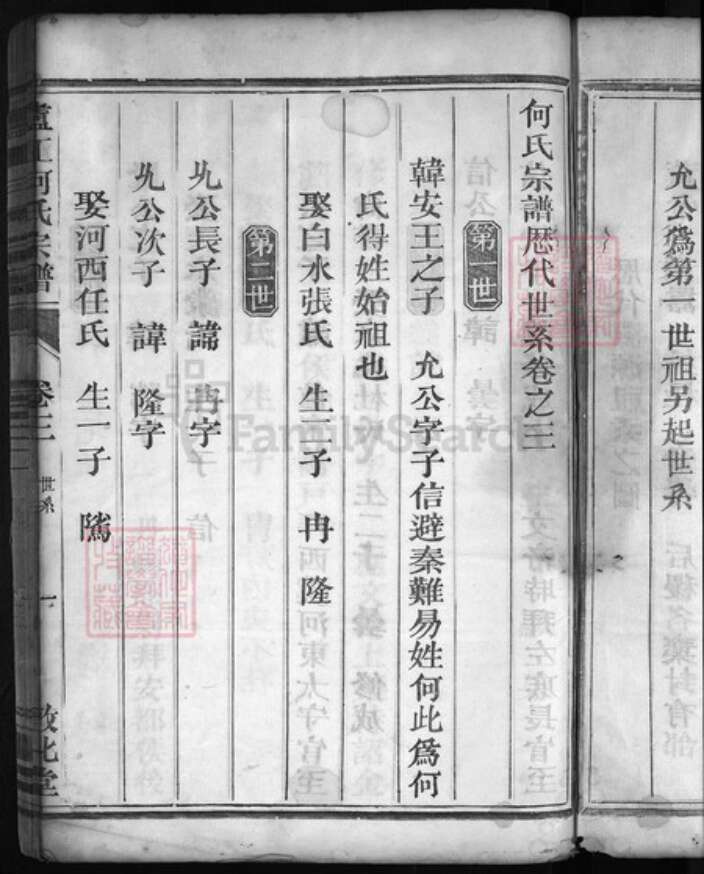 允公爲第一世祖另起世系
何氏宗譜歴代世系卷之三
第一世
韓安王之子 允公字子信避秦難易姓何此爲何
氏得姓始祖也
娶白水張氏 生二子 冉 隆
第二世
允公長子 諱 冉字
允公次子 諱 隆字
娶河西任氏 生一子
廬江何氏宗譜 卷三 世系 一
FamilySearch